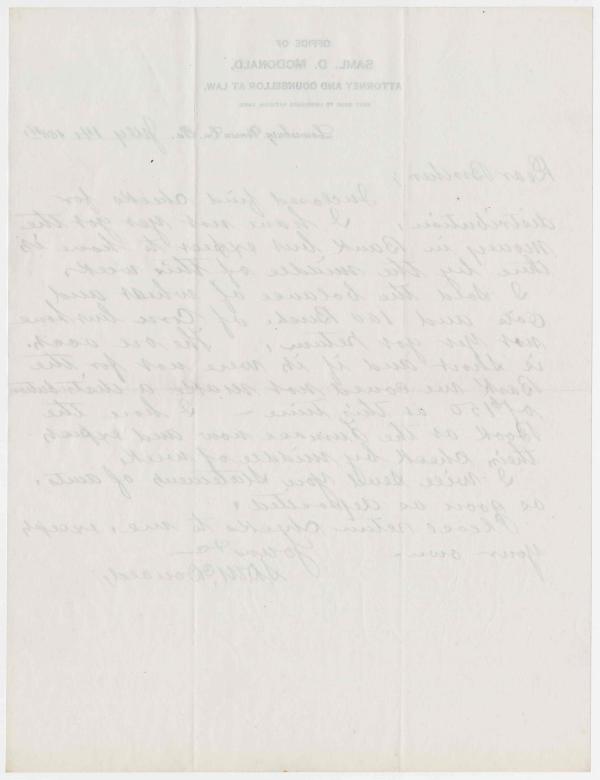 OFFICE OF
SAML. D. McDONALD,
ATTORNEY AND COUNSELLOR AT LAW,
Lewisburg, Union Co., Pa. July 14, 
Dear Brother,
Inclosed find checks for
distribution, I have not yet got the
money in Bank but expect to have it
there by the middle of this week,
I sold the balance of wheat and
Oats and 100 Bush. of Corn but have
not yet got return, The ore acct.
is short and if it were not for the
Bank we could not make a distribution
of $150 at this time - I have the
Book at the Furnace now and expect
their check by middle of week,
I will send you statement of acts.
as soon as deposited,
Please return checks to me, except
your own -
Yours &c -
S D McDonald,